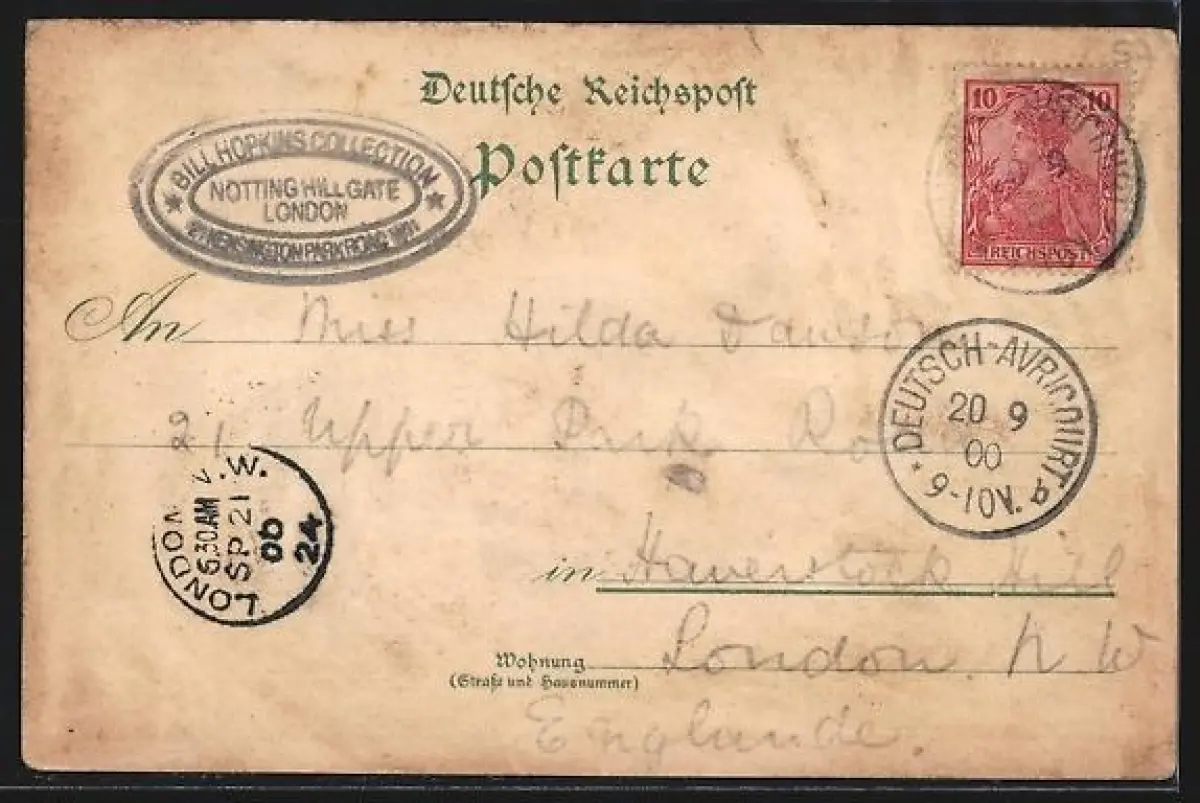 Deutsche Reichspost
Postkarte
BILL HOPKINS COLLECTION
NOTTING HILL GATE
LONDON
KENSINGTON PARK ROAD W11
10 10
REICHSPOST
An Miss Hilda
21 Upper Park
DEUTSCH-AVRICOURT a
20 9
00
9-10V.
LONDON .W.
6.30AM
SP 21
00
24
in Haverstock Hill
Wohnung London N W
(Straße und Hausnummer)
Englande.